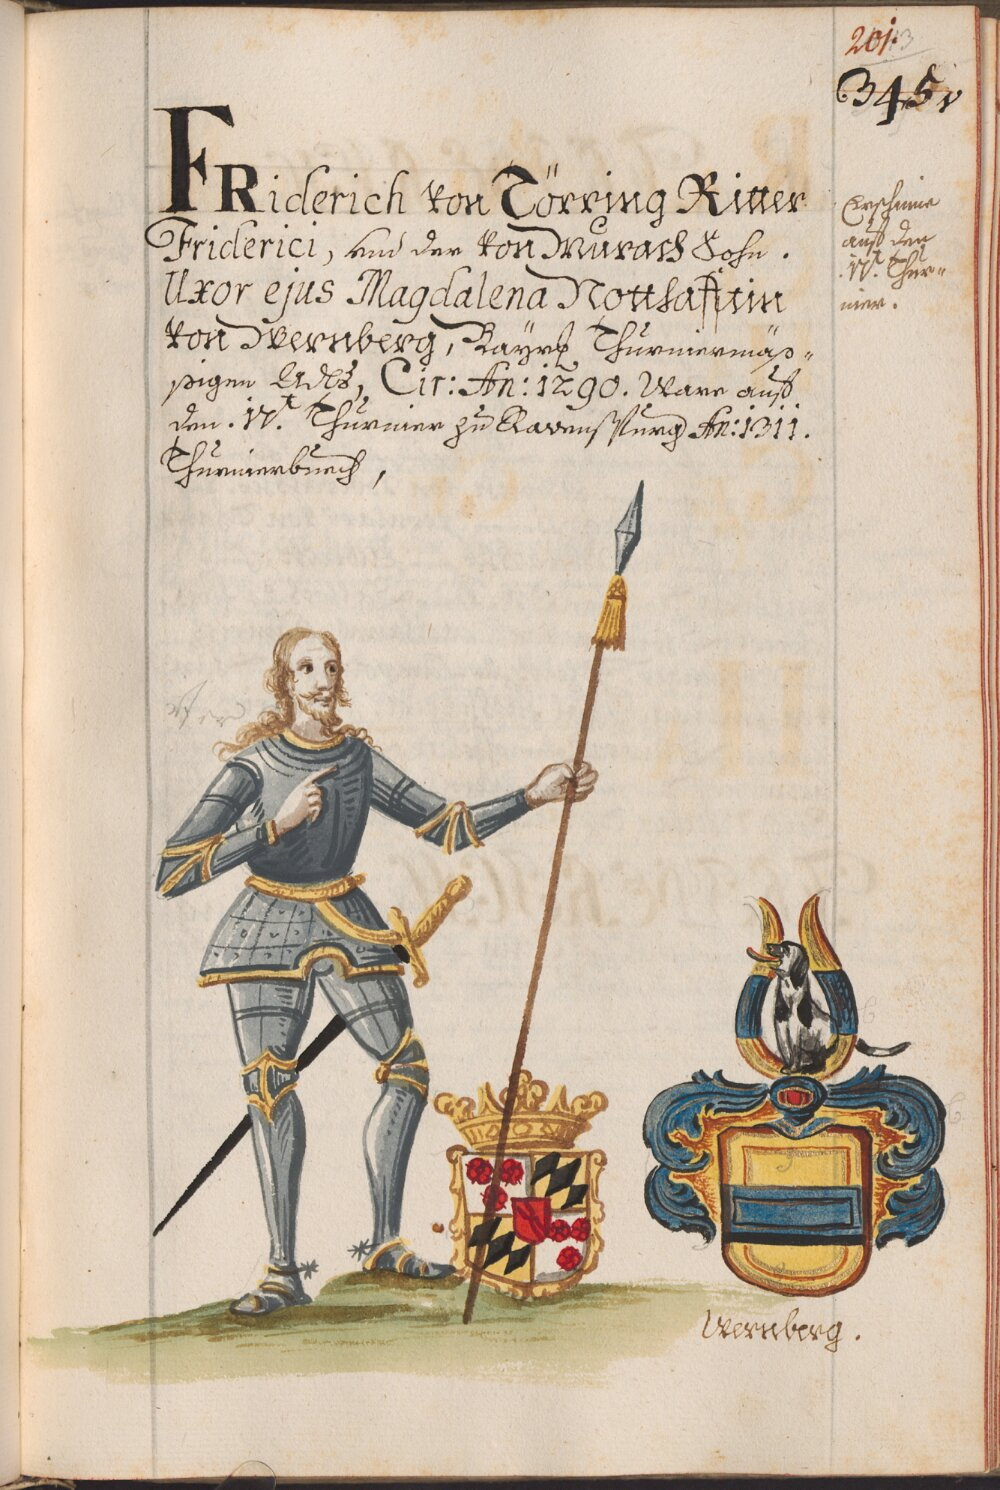 201.
345v
FRiderich von Törring Ritter
Friderici, und der von Murach Sohn.
Uxor ejus Magdalena Notthafftin
von Wernberg, Bayrß Thurniermäs=
sigen Adls, Cir: An: 1290. Ware auff
den .17.t Thurnier zu Ravenspurg An: 1311.
Thurnierbuech,
Erscheine
auff den
.17.t Thur=
nier.
Wernberg.